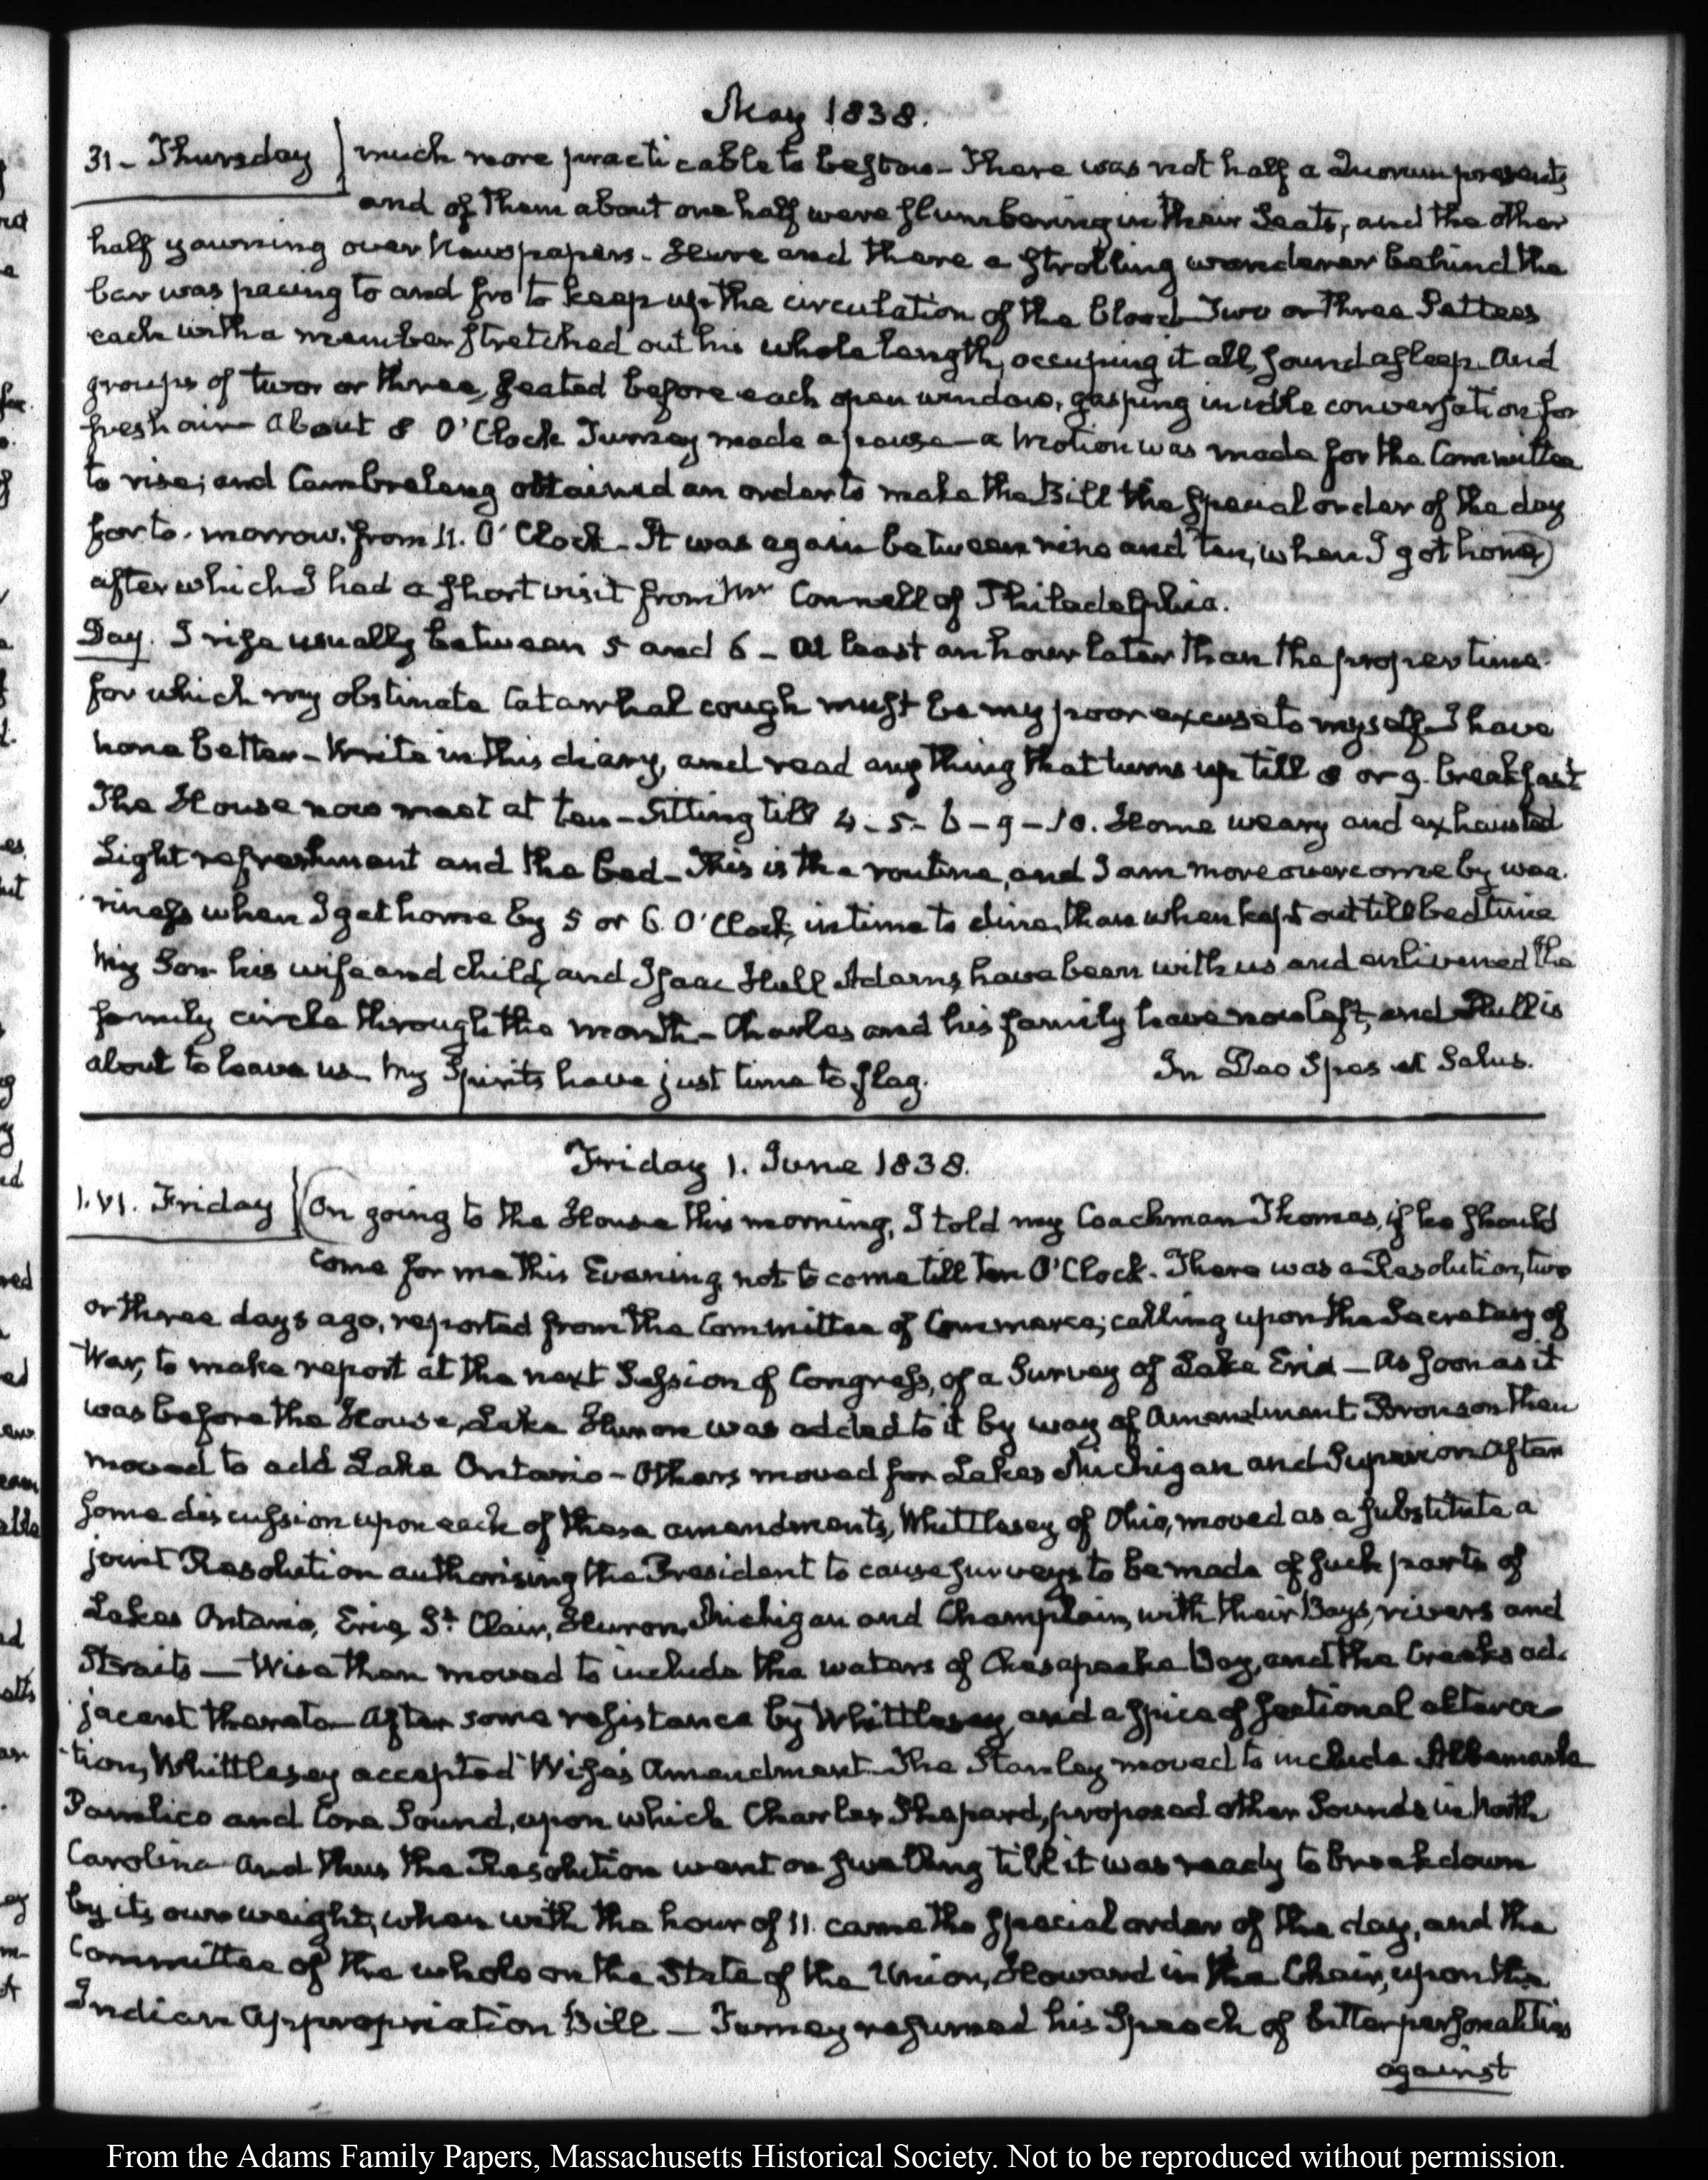 May 1838.
31 - Thursday much more practicable to bestow - There was not half a Quorum present,
and of them about one half were slumbering in their Seats, and the other
half yawning over Newspapers - Here and there a strolling wanderer behind the
bar was pacing to and fro to keep up the circulation of the blood - Two or three Settees
each with a member stretched out his whole length, occupying it all, sound asleep. And
groups of two or three, seated before each open window, gasping in idle conversation for
fresh air - About 8 O'Clock Turney made a pause - a motion was made for the Committee
to rise; and Cambreleng obtained an order to make the Bill the special order of the day
for to-morrow, from 11. O'Clock - It was again between nine and ten, when I got home)
after which I had a short visit from Mr Connell of Philadelphia.
Day. I rise usually between 5 and 6 - At least an hour later than the proper time
for which my obstinate Catarrhal cough must be my poor excuse to myself - I have
none better - Write in this diary, and read any thing that turns up till 8 or 9. breakfast
The House now meet at ten - Sitting till 4 - 5 - 6 - 9 - 10. Home weary and exhausted
Light refreshment and the bed - This is the routine, and I am more overcome by wea-
riness when I get home by 5 or 6. O'Clock, in time to dine, than when kept out till bedtime
My Son his wife and child, and Isaac Hull Adams, have been with us and enlivened the
family circle through the month - Charles and his family have now left, and Hull is
about to leave us - My Spirits have just time to flag. In Deo Spes et Salus.
Friday 1. June 1838.
1. VI. Friday (On going to the House this morning, I told my Coachman Thomas, if he should
come for me this Evening, not to come till Ten O'Clock. There was a Resolution, two
or three days ago, reported from the Committee of Commerce; calling upon the Secretary of
War, to make report at the next Session of Congress, of a Survey of Lake Erie - As soon as it
was before the House, Lake Huron was added to it by way of Amendment. Bronson then
moved to add Lake Ontario - Others moved for Lakes Michigan and Superior. After
some discussion upon each of these amendments, Whittlesey of Ohio, moved as a substitute a
joint Resolution authorising the President to cause surveys to be made of such parts of
Lakes Ontario, Erie, St. Clair, Huron, Michigan and Champlain, with their Bays, rivers and
Straits - Wise then moved to include the waters of Chesapeake Bay, and the Creeks ad-
jacent thereto - After some resistance by Whittlesey, and a spice of sectional alterca-
tion, Whittlesey accepted Wise's Amendment. The Stanley moved to include Albemarle
Pamlico and Core Sound, upon which Charles Shepard, proposed other Sounds in North
Carolina - And thus the Resolution went on swelling till it was ready to break down
by its own weight, when with the hour of 11. came the special order of the day, and the
Committee of the whole on the State of the Union, Howard in the Chair, upon the
Indian Appropriation Bill - Turney resumed his Speech of bitter personalities
against
From the Adams Family Papers, Massachusetts Historical Society. Not to be reproduced without permission.